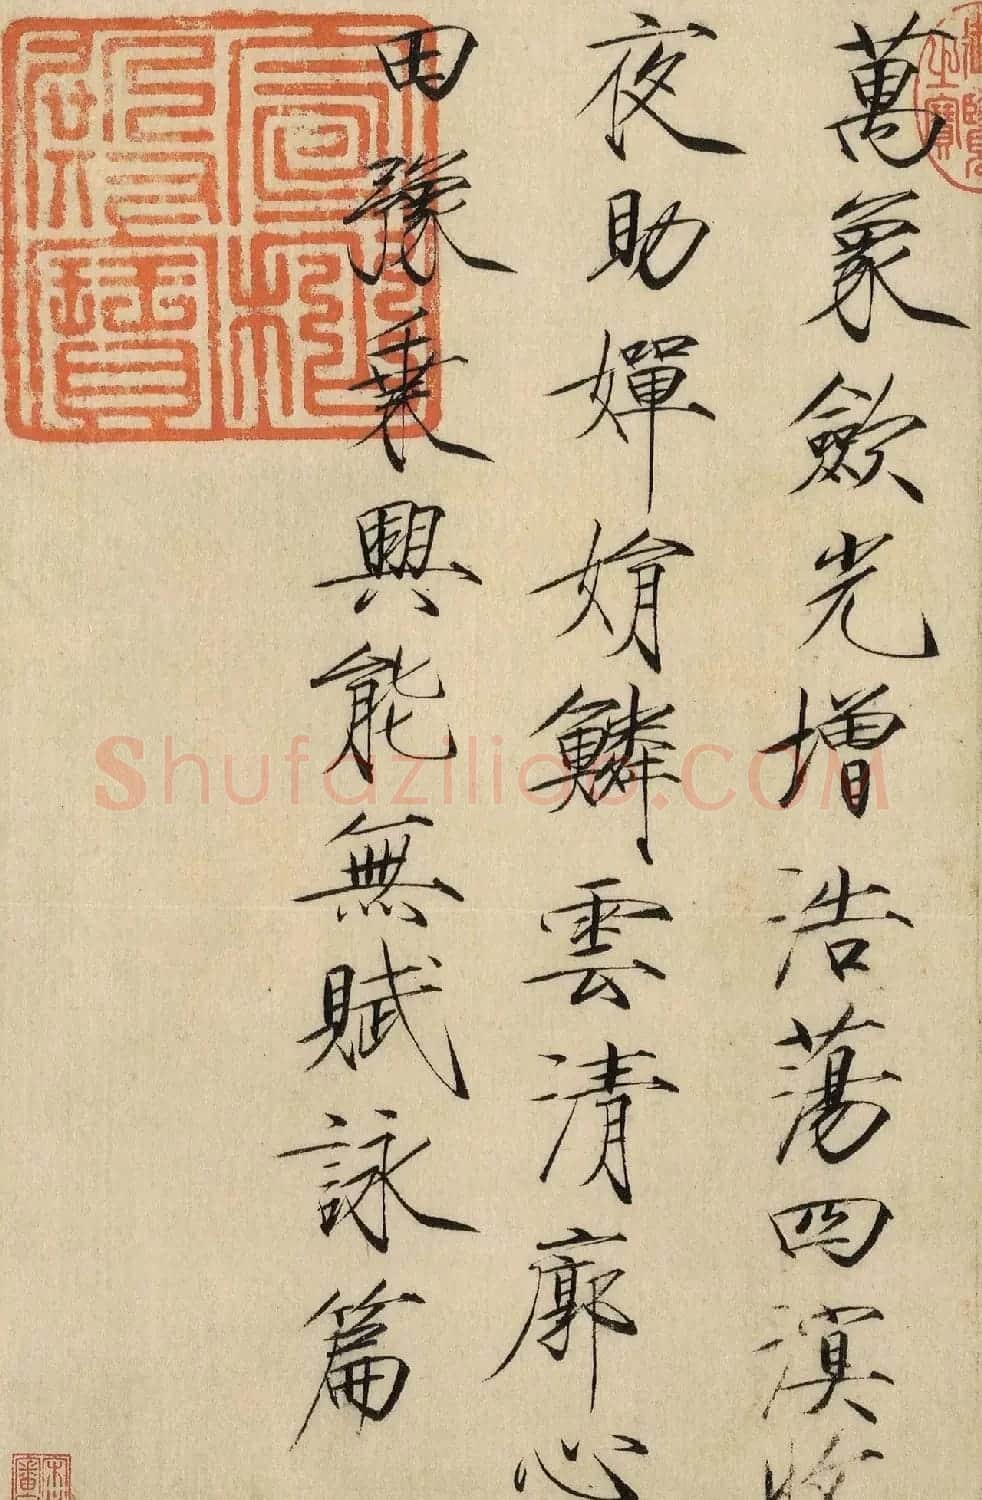 萬象歛光增浩蕩四溟收
夜助嬋娟鱗雲清廓心
田豫乗興能無賦詠篇
Shufaziliao.COM